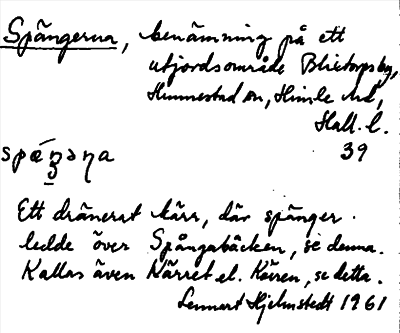 Spångerna, benämning på ett
utjordsområde Blixtorps by,
Hunnestad sn, Himle hd,
Hall. l.
39
Ett dränerat kärr, där spänger
ledde över Spångabäcken, se denna.
Kallas även Kärret el. Kären, se detta.
Lennart Hjelmstedt 1961